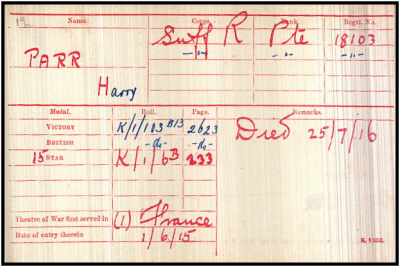 Name. Corps. Rank. Regtl. No.
PARR Suff R Pte 18103
-"- -"- -"-
Harry
Medal. Roll. Page. Remarks.
VICTORY K/1/103 B13 2623 Died 25/7/16
BRITISH -do- -do-
15 STAR K/1/6B 233
Theatre of War first served in (1) France
Date of entry therein 1/6/15
K. 1380.